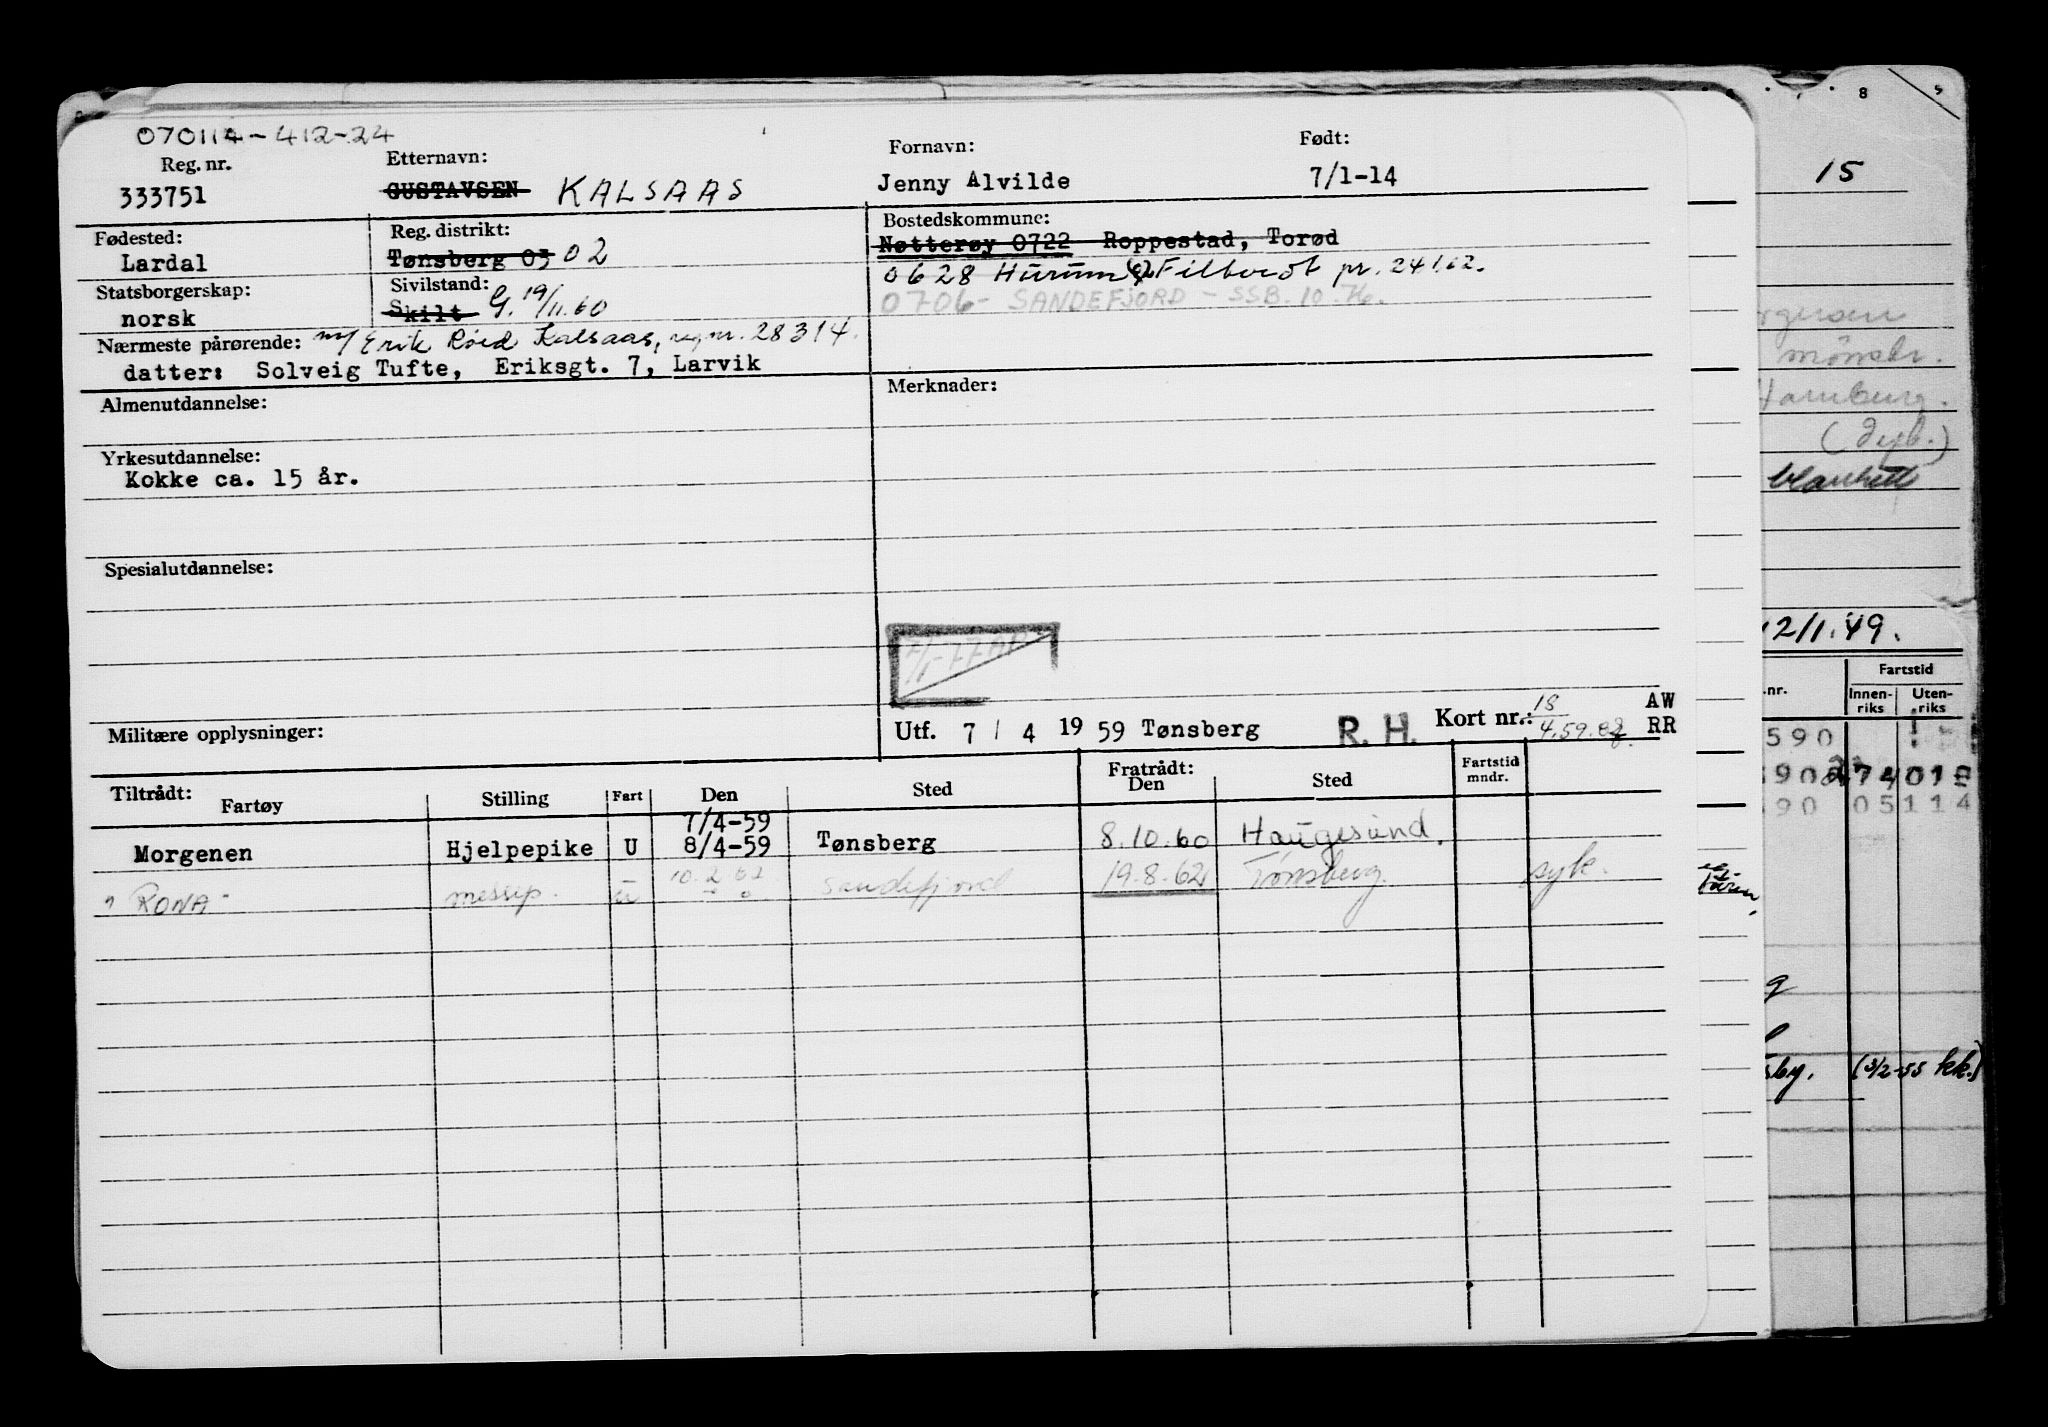 070114-412-24
Reg. nr. Etternavn: Fornavn: Født:
333751 GUSTAVSEN KALSAAS Jenny Alvilde 7/1-14
Fødested: Reg. distrikt: Bostedskommune:
Lardal Tønsberg 03 02 Nøtterøy 0722 Roppestad, Torød
Statsborgerskap: Sivilstand: 0628 Hurum Filtvedt pr. 241.62.
norsk Skilt G. 19/11.60 0706 - SANDEFJORD - SSB. 10.76.
Nærmeste pårørende: m/ Erik Roed Kalsaas, reg nr. 28314.
datter: Solveig Tufte, Eriksgt. 7, Larvik
Almenutdannelse: Merknader:
Yrkesutdannelse:
Kokke ca. 15 år.
Spesialutdannelse:
Militære opplysninger: Utf. 7 / 4 19 59 Tønsberg R. H. Kort nr.: 18/4.59. AW RR
Tiltrådt: Fratrådt:
Fartøy Stilling Fart Den Sted Den Sted Fartstid mndr.
7/4-59
Morgenen Hjelpepike U 8/4-59 Tønsberg 8.10.60 Haugesund.
"RONA" messep. u 10.2.62 Sandefjord 19.8.62 Tønsberg. syk.
8 5
15
mønstr.
Hamburg.
blankett
12/1.49.
Fartstid
.nr. Innenriks Utenriks
590
05114